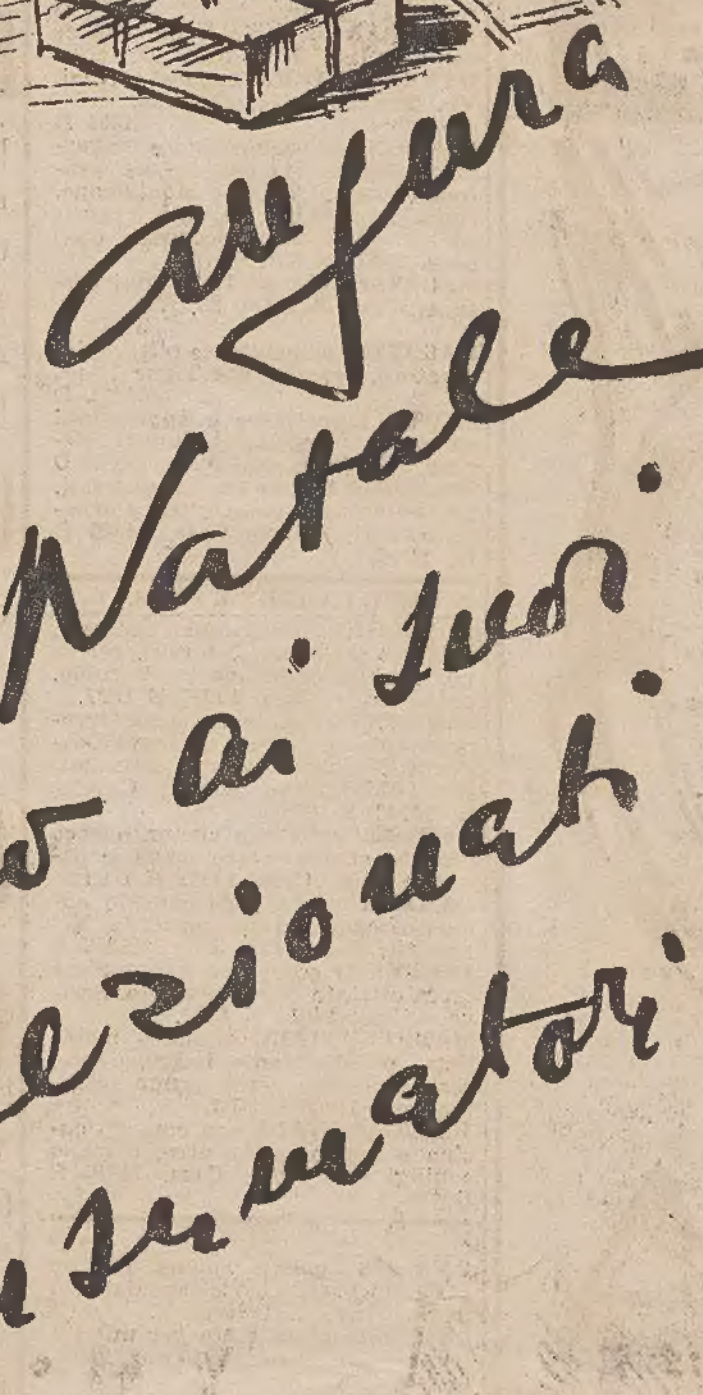 augura
Natale
ai suoi
ezionati
nsumatori